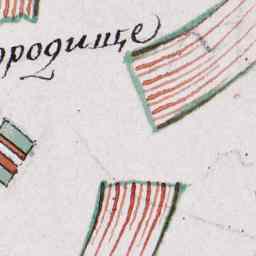 ородище